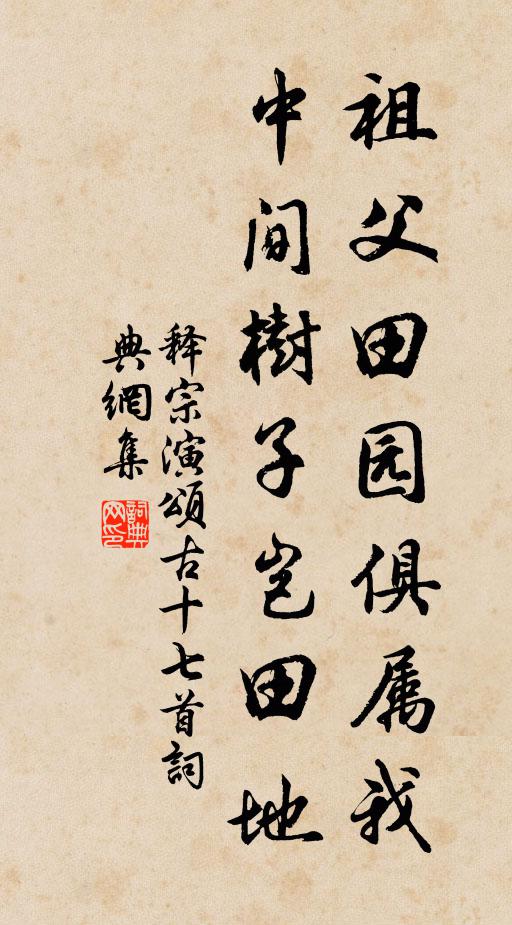 祖父田园俱属我
中间樹子岂田地
释宗演颂古十七首詞
典網集
詞典
网印